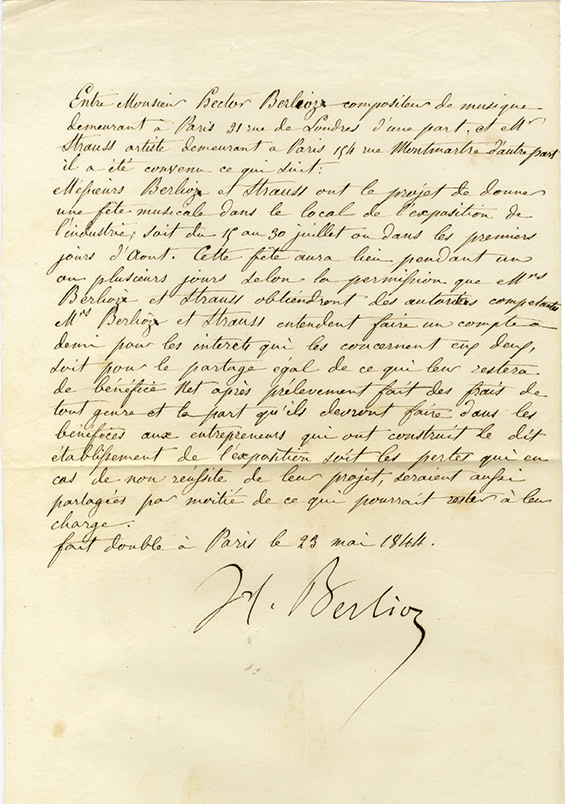 Entre Monsieur Hector Berlioz compositeur de musique
demeurant à Paris 31 rue de Londres d'une part, et Mr
Strauss artiste demeurant à Paris 154 rue Montmartre d'autre part
il a été convenu ce qui suit:
Messieurs Berlioz et Strauss ont le projet de donner
une fête musicale dans le local de l'exposition de
l'industrie, soit du 15 au 30 juillet ou dans les premiers
jours d'Aout. Cette fête aura lieu pendant un
ou plusieurs jours selon la permission que Mrs
Berlioz et Strauss obtiendront des autorités competantes
Mrs Berlioz et Strauss entendent faire un compte a
demi pour les interets qui les concernent eux deux,
soit pour le partage égal de ce qui leur restera
de bénéfice Net après prélevement fait des frais de
tout genre et la part qu'ils devront faire dans les
bénéfices aux entrepreneurs qui ont construit le dit
établissement de l'exposition soit les pertes qui en
cas de non reussite de leur projet, seraient aussi
partagées par moitié de ce qui pourrait rester à leur
charge.
fait double à Paris le 23 mai 1844.
H. Berlioz